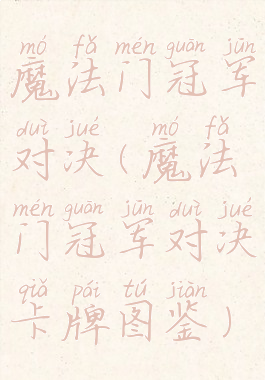 mó fǎ mén guān jūn
魔法门冠军
duì jué mó fǎ
对决(魔法
mén guān jūn duì jué
门冠军对决
qiǎ pái tú jiàn
卡牌图鉴)